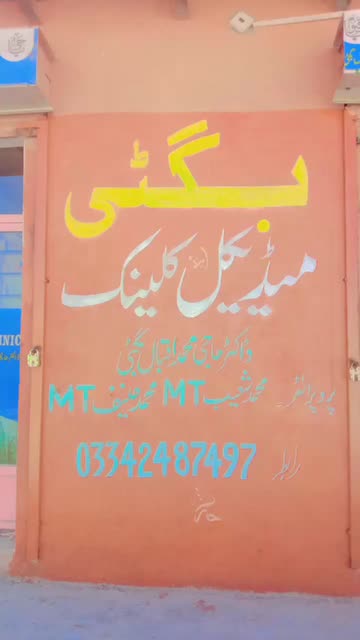 بگٹی
میڈیکل کلینک
ڈاکٹر حاجی محمد اقبال بگٹی
پروپرائٹر۔ محمد شعیب MT محمد حنیف MT
رابطہ 03342487497
NIC